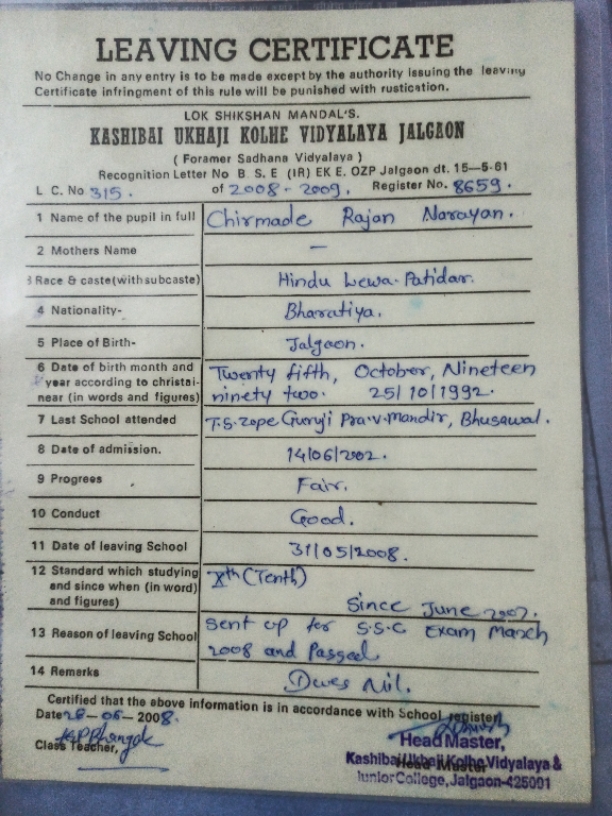 LEAVING CERTIFICATE
No Change in any entry is to be made except by the authority issuing the leaving
Certificate infringment of this rule will be punished with rustication.
LOK SHIKSHAN MANDAL'S.
KASHIBAI UKHAJI KOLHE VIDYALAYA JALGAON
( Foramer Sadhana Vidyalaya )
Recognition Letter No B. S. E (IR) EK E. OZP Jalgaon dt. 15-5-61
L C. No 315. of 2008-2009. Register No. 8659.
1 Name of the pupil in full Chirmade Rajan Narayan.
2 Mothers Name —
3 Race & caste(with subcaste) Hindu Lewa-Patidar.
4 Nationality- Bharatiya.
5 Place of Birth- Jalgaon.
6 Date of birth month and Twenty fifth, October, Nineteen
year according to christai- ninety two. 25/10/1992.
near (in words and figures)
7 Last School attended T.S.Zope Guruji Pra.v.mandir, Bhusawal.
8 Date of admission. 14/06/2002.
9 Progrees Fair.
10 Conduct Good.
11 Date of leaving School 31/05/2008.
12 Standard which studying Xth (Tenth)
and since when (in word)
and figures) Since June 2007.
13 Reason of leaving School Sent up for S.S.C Exam March
2008 and Passed
14 Remarks Dues Nil.
Certified that the above information is in accordance with School register
Date 28-06-2008.
Class Teacher,
Head Master,
Kashibai Ukhaji Kolhe Vidyalaya &
Junior College, Jalgaon-425001